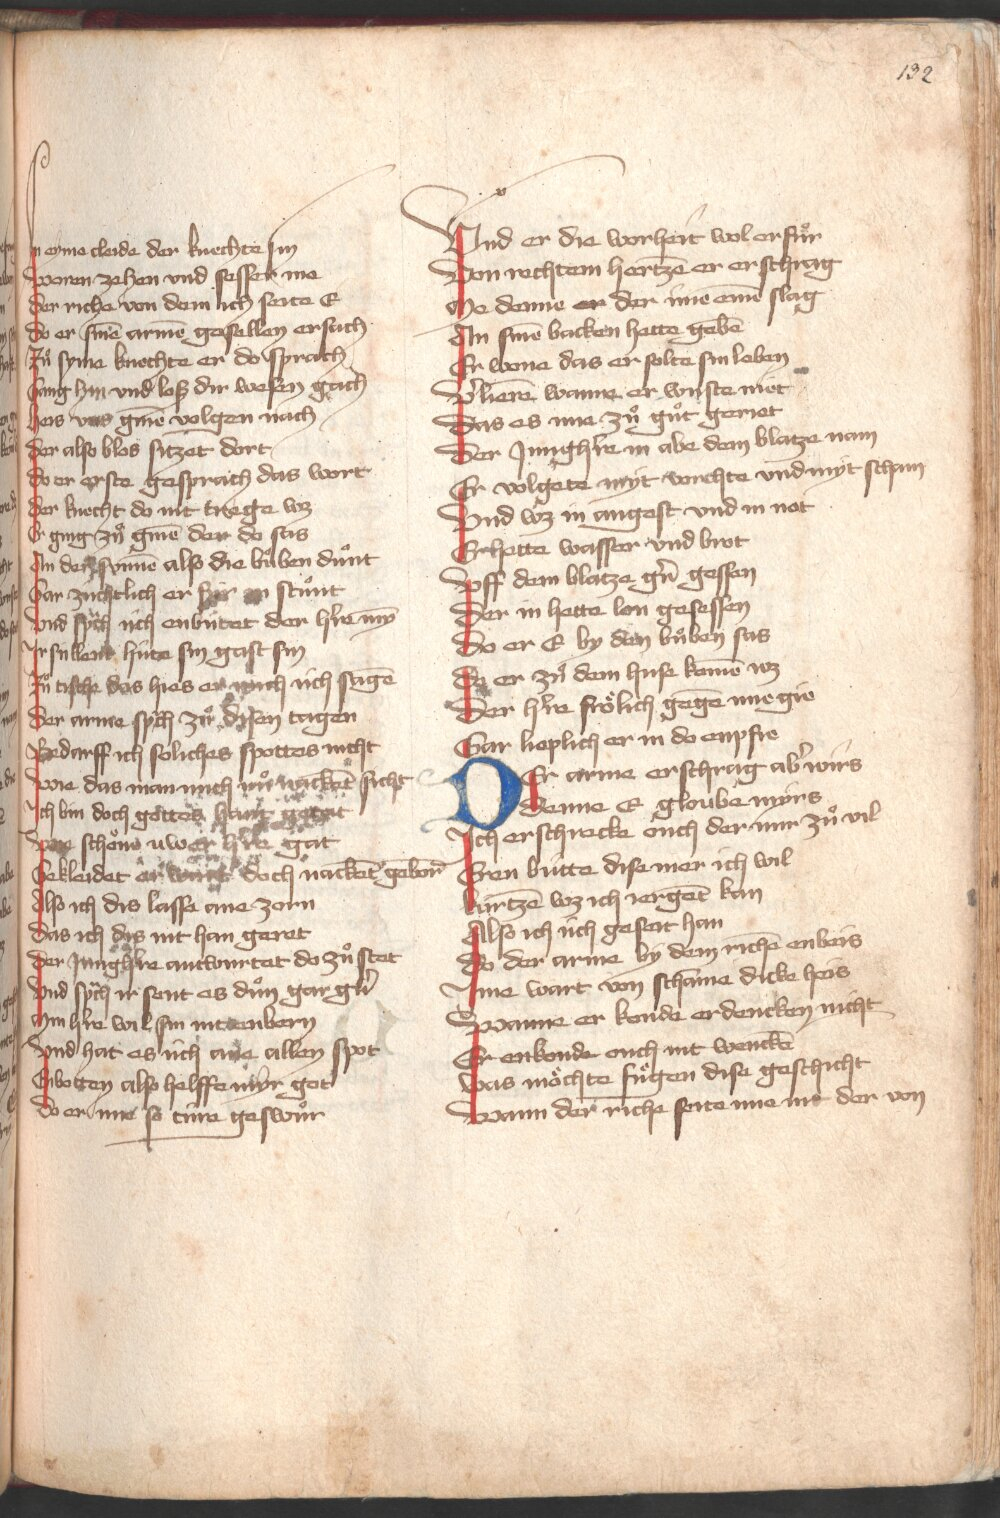 132
In eyme cleide der knechte sin
Woren zehen vnd sesser me
Der riche von dem ich seite E
Do er sinē armē gesellen ersach
Zů syme knechte er do sprach
Gang hin vnd loß dir wesen gach
Heis vns ginē volgen nach
Der also blos sitzet dort
Do er erste gesprach das wort
Der knecht do nit trege wz
Er ging zů ginē der do sas
An der sunnē also die bůben důnt
Gar zuchtlich er fúr in stůnt
Vnd sp̄ch úch enbútet der h̄re myn
Ir sullent húte sin gast sin
Zů tische das hies er mich úch sagē
Der arme sp̄ch zů disen tagen
Bedarff ich soliches spottes nicht
Wie das man mich nů nackēt sicht
Ich bin doch gottes hant getat
Wie schōne uwer h̄re gat
Gekleidet er wart doch nackēt geborn
Also ich dis lasse ane zorn
Das ich dis nit han geret
Der Jungh̄re antwurtet do zů stet
Vnd sp̄ch ir sent es důn gar gern
Min h̄re wil sin nit enbern
Vnd hat es úch ane allen spot
Enbotten also helffe mỹr got
Do er ime so túre geswůr
Vnd er die worheit wol erfůr
Von rechtem hertzē er erschrag
Me denne er der ime einē slag
An sinē backen hette gebē
Er wene das er solte sin leben
V̓lierē wanne er wuste niet
Das es ime zů gůt geriet
Der Jungh̄re in abe dem blatze nam
Er volgete mỹt vorchte vnd mỹt scham
Vnd wz in angest vnd in not
Er hette wasser vnd brot
Vff dem blatze gern gessen
Der in hette lon gesessen
Do er E by den bůben sas
Do er zů dem huse komē wz
Der h̄re frölich gegē ime gie
Gar lieplich er in do enpfie
Der arme erschrag ab̓ wirs
Denne E gloube mirs
Ich erschrecke ouch der mir zů vil
Eren bútte dise mer ich wil
Kúrtzē wz ich iergēt kan
Also ich úch geseit han
Do der arme by dem richē enbeis
Ime wart von schame dicke heis
Wanne er konde erdencken nicht
Er enkonde ouch nit wenckē
Was möchte fůgen dise geschicht
Wann der riche seite ime nit der von